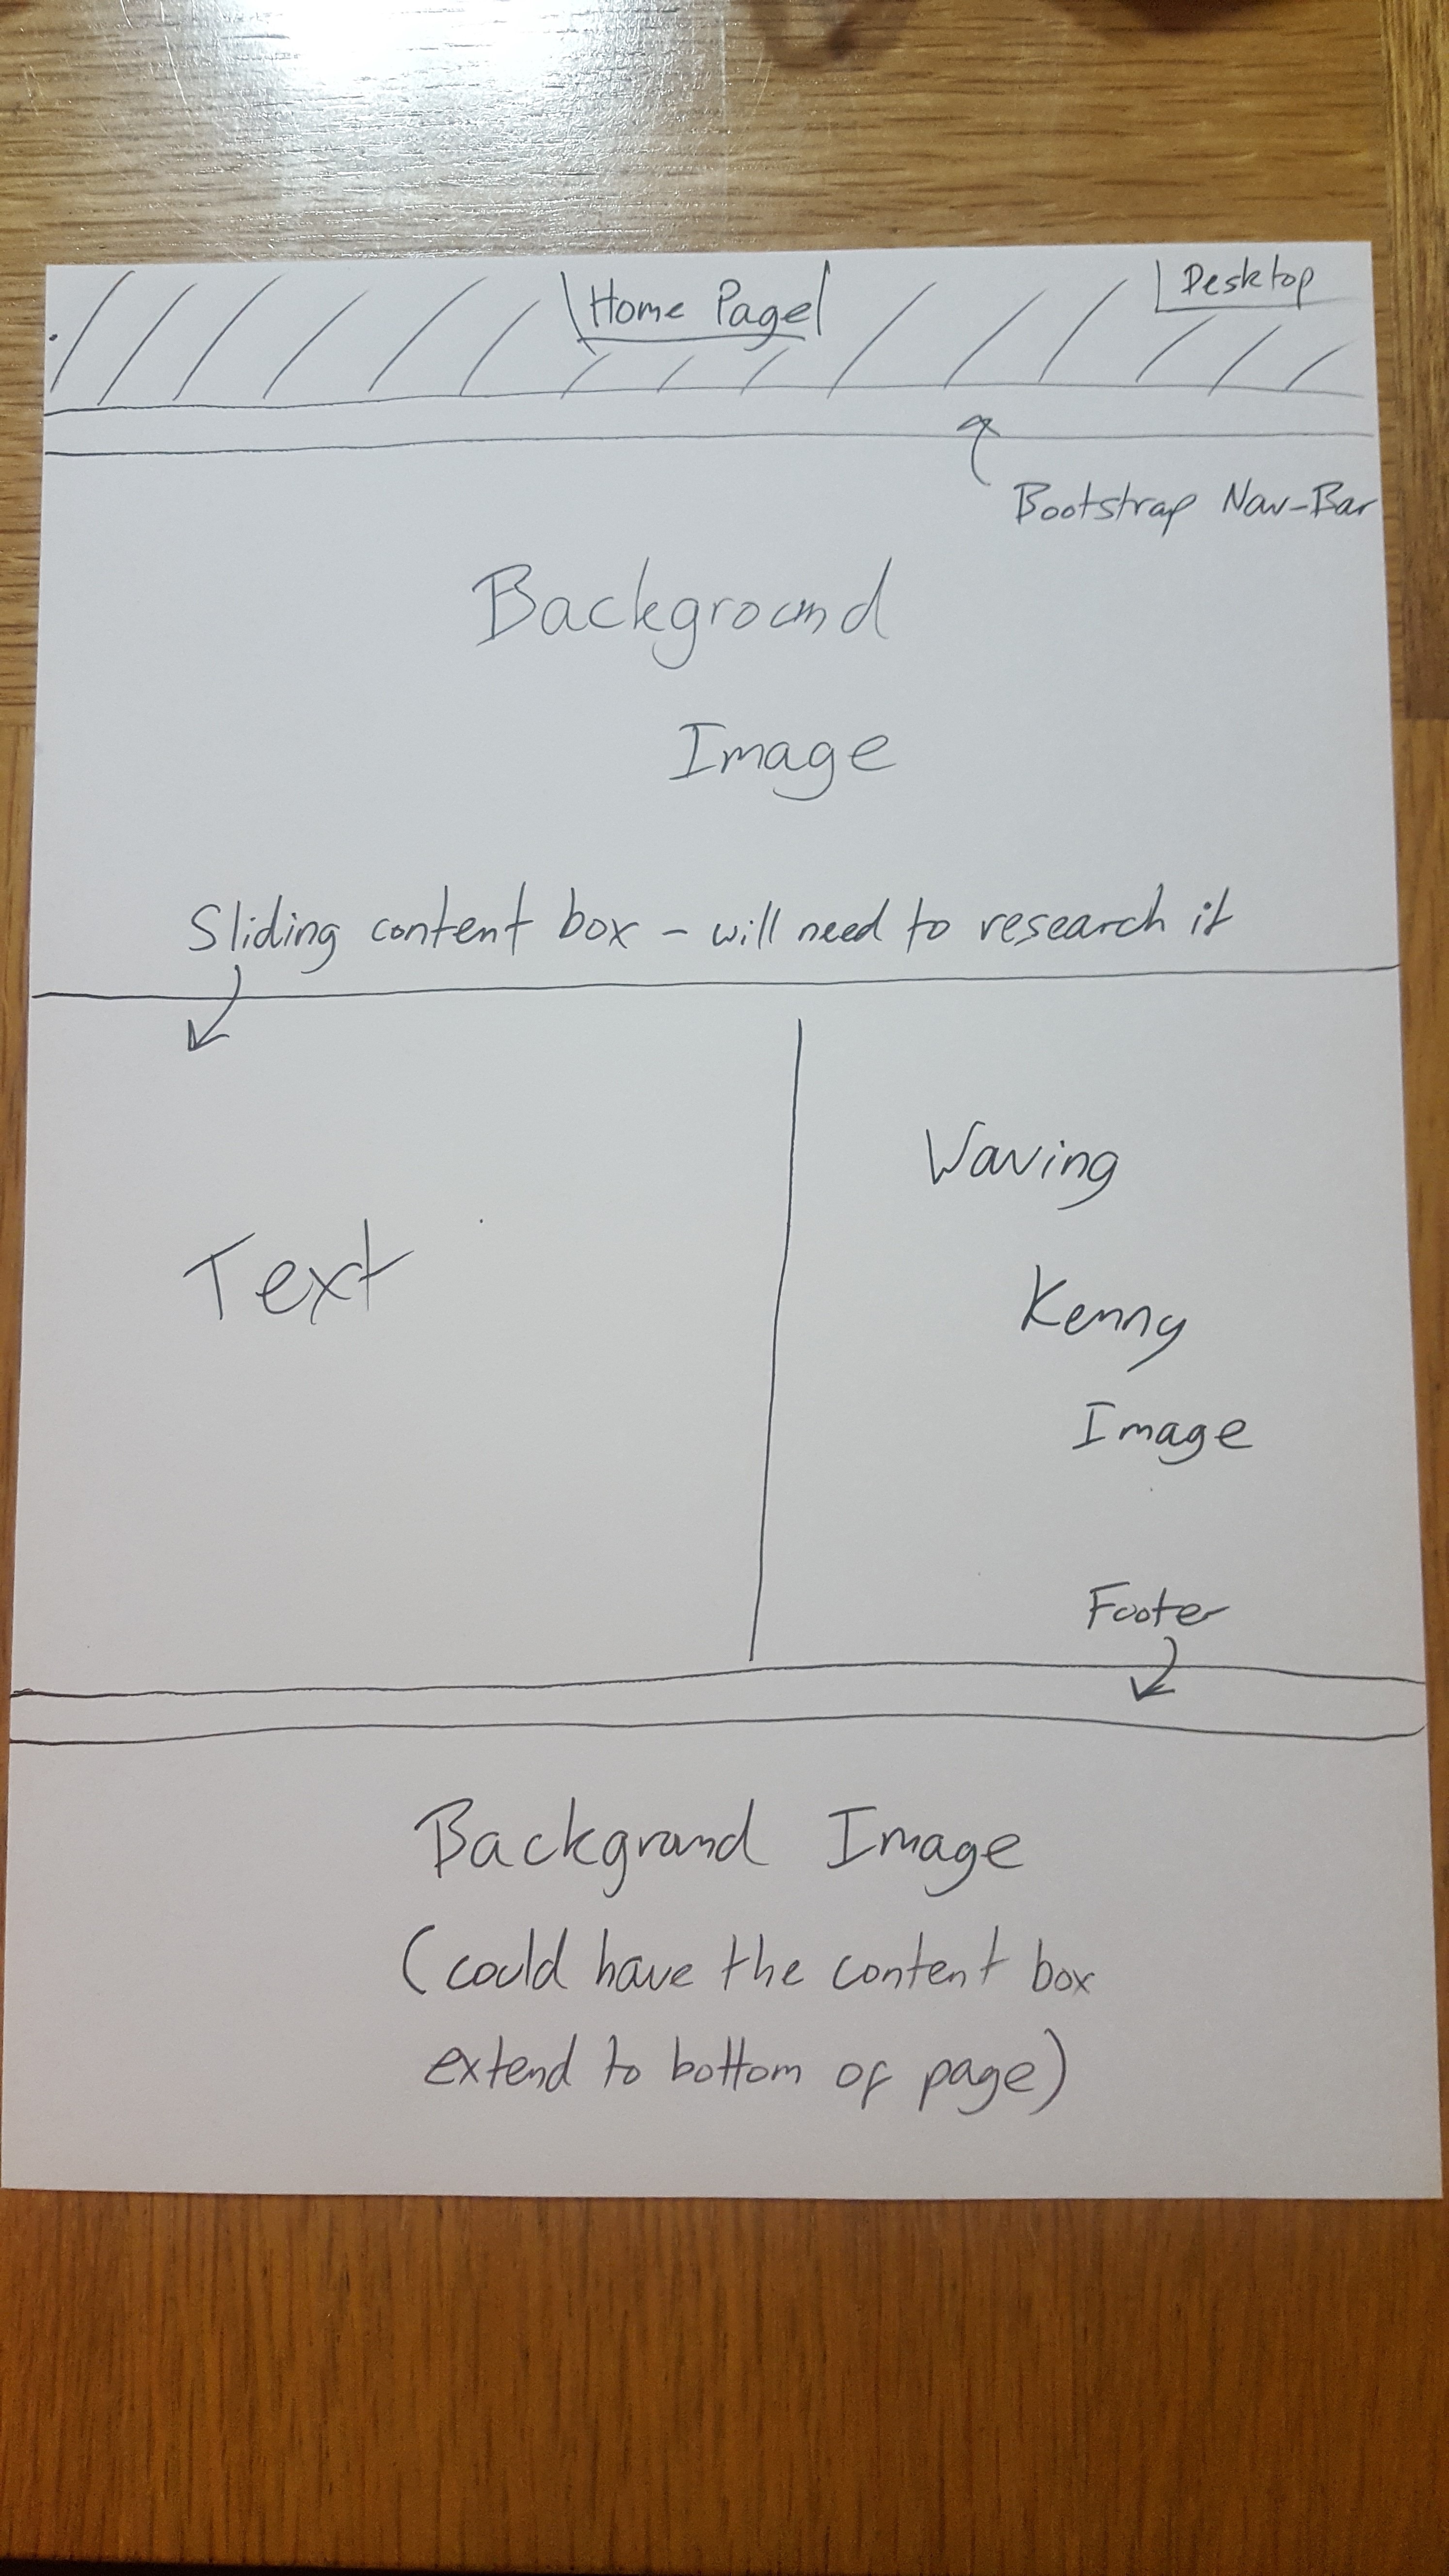 Home Page
Desktop
Bootstrap Nav-Bar
Background
Image
Sliding content box - will need to research it
Text
Waving
Kenny
Image
Footer
Background Image
(could have the content box
extend to bottom of page)